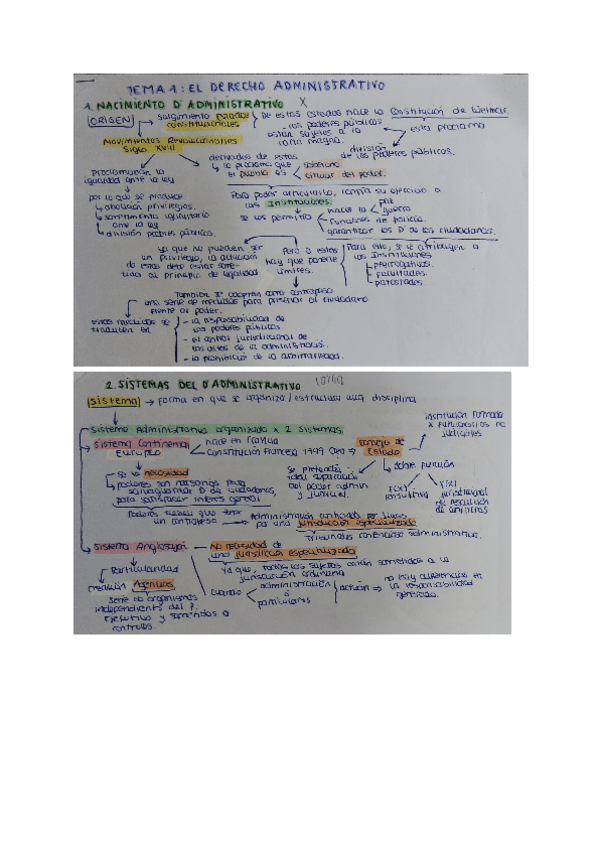 TEMA 1: EL DERECHO ADMINISTRATIVO
1. NACIMIENTO D'ADMINISTRATIVO X
ORIGEN → surgimiento Estados constitucionales
De estos Estados nace la Constitución de Weimar.
- los poderes públicos están sujetos a la carta magna.
esta proclama
división de los poderes públicos.
Movimientos Revolucionarios Siglo XVIII
derivados de estos
se proclama que el pueblo es
soberano
titular del poder.
proclamación la igualdad ante la ley
por lo que se produce
abolición privilegios.
sometimiento igualitario ante la ley
división poderes públicos.
Para poder articularlo, confía su ejercicio a las Instituciones
se les permitía
hacer la
guerra
funciones de policía.
garantizar los D de los ciudadanos.
ya que no pueden ser un privilegio, la actuación de estas debe estar sometida al principio de legalidad
Pero a estas hay que ponerle límites.
Para ello, se le atribuyen a las Instituciones
prerrogativas.
facultades.
potestades.
También se adoptan como contrapeso una serie de medidas para preservar al ciudadano frente al poder.
estas medidas se traducen en
- la responsabilidad de los poderes públicos
- el control jurisdiccional de los actos de la administració.
- la prohibición de la arbitrariedad.
2. SISTEMAS DEL D'ADMINISTRATIVO
sistema → forma en que se organiza/estructura una disciplina
Sistema Administrativo organizado x 2 sistemas
Sistema Continental Europeo
nace en Francia
Constitución Francesa
Consejo de Estado
institución formada x funcionarios no judiciales
se pretendía ideal separación del poder admin y judicial.
doble función
f(x) consultiva
f(x) jurisdiccional de resolución de
se ve necesidad
poderes son necesarios para salvaguardar D de ciudadanos, para satisfacer interés general
Poderes tienen que tener un contrapeso
Administración controlada por jueces
por una jurisdicción especializada
Tribunales contencioso administrativo.
Sistema Anglosajón
No necesidad de una jurisdicción especializada
Ya que, todos los sujetos están sometidos a la jurisdicción ordinaria
Particularidad
mediación Agencias
serie de organismos independientes del P. ejecutivo y sometidos a controles
Cuando
administración
o
particulares
actúan →
no hay diferencias en la responsabilidad generada.